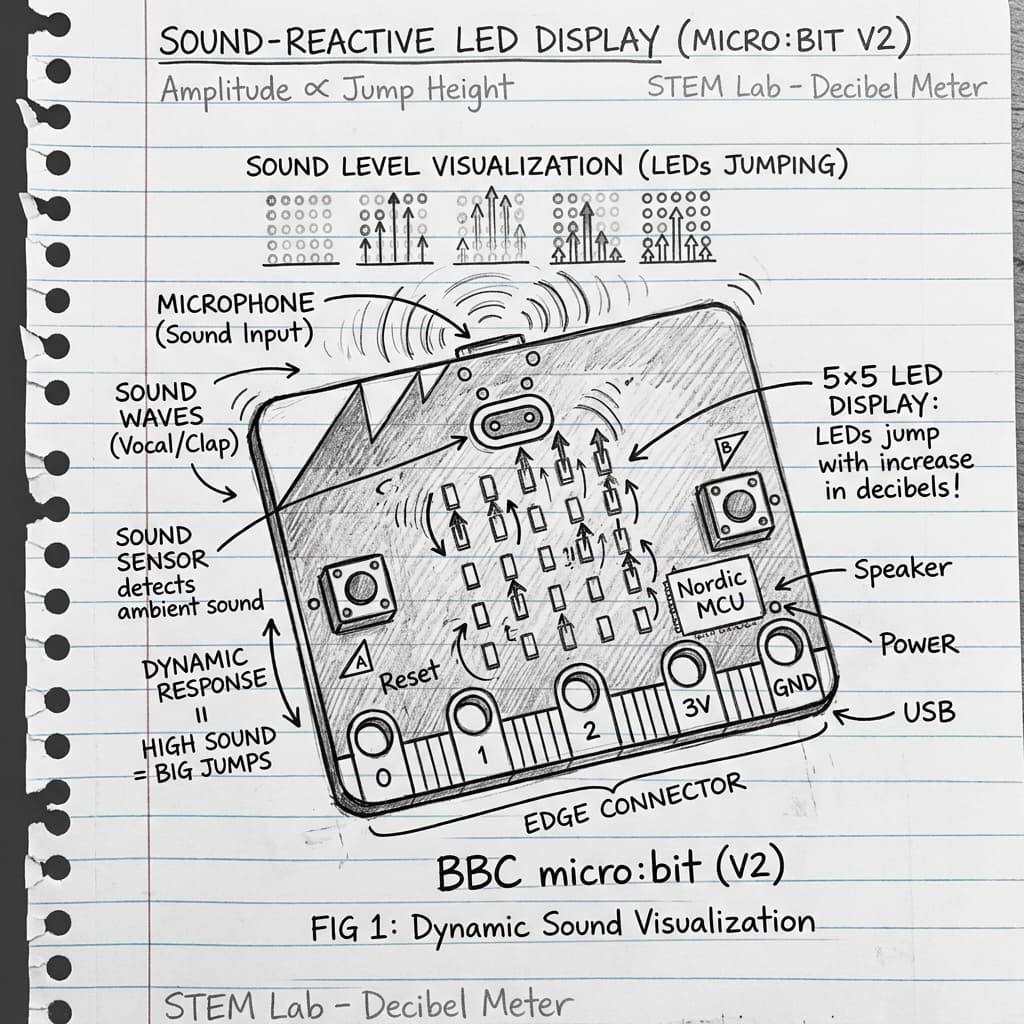 SOUND-REACTIVE LED DISPLAY (MICRO:BIT V2)
Amplitude ∝ Jump Height
STEM Lab - Decibel Meter
SOUND LEVEL VISUALIZATION (LEDs JUMPING)
MICROPHONE
(Sound Input)
SOUND
WAVES
(Vocal/Clap)
5×5 LED
DISPLAY:
LEDs jump
with increase
in decibels!
B
SOUND
SENSOR
detects
ambient sound
Nordic
MCU
Speaker
POWER
A
Reset
DYNAMIC
RESPONSE
=
HIGH SOUND
= BIG JUMPS
0
1
2
3V
GND
USB
EDGE CONNECTOR
BBC micro:bit (V2)
FIG 1: Dynamic Sound Visualization
STEM Lab - Decibel Meter